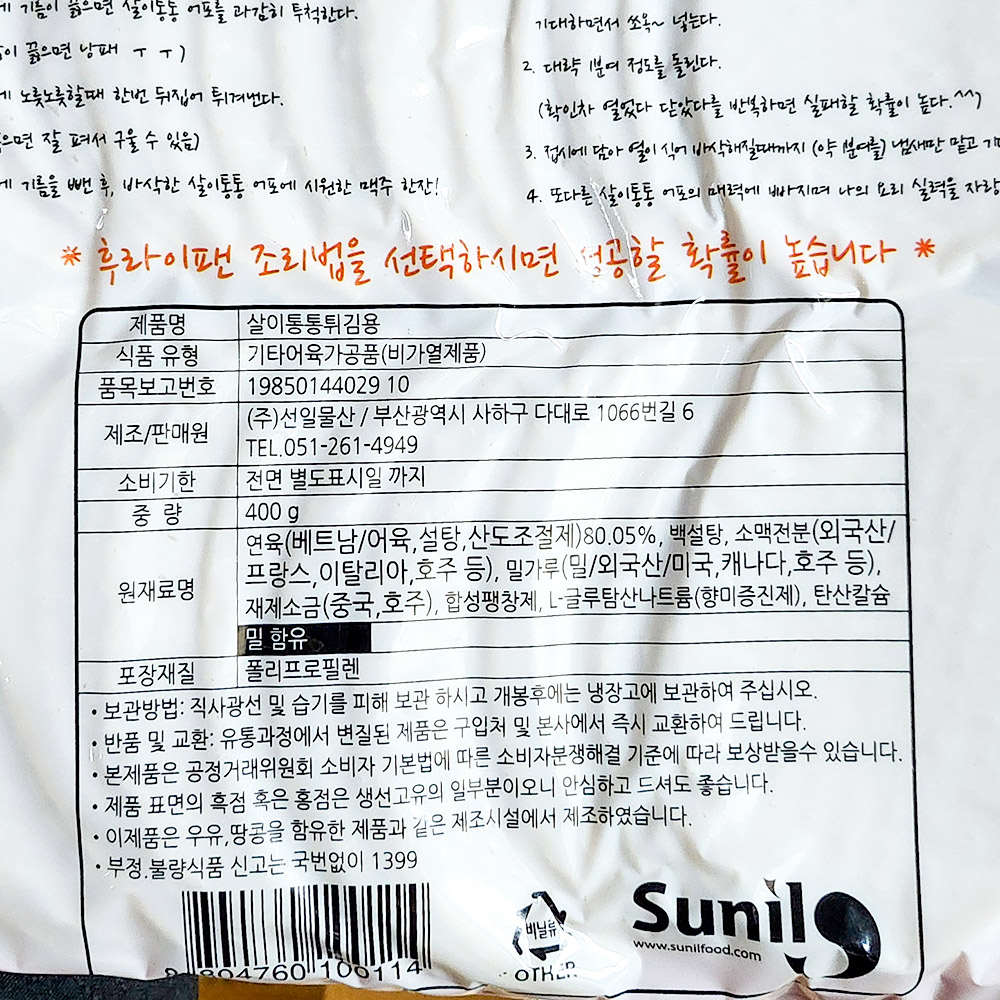 기름이 끓으면 살이통통 어포를 과감히 투척한다.
끓으면 낭패 ㅜㅜ)
노릇노릇할때 한번 뒤집어 튀겨낸다.
잘 펴서 구울 수 있음)
기름을 뺀 후, 바삭한 살이통통 어포에 시원한 맥주 한잔!
기대하면서 쏘옥~ 넣는다.
2. 대략 1분여 정도를 돌린다.
(확인차 열었다 닫았다를 반복하면 실패할 확률이 높다.^^)
3. 접시에 담아 열이 식어 바삭해질때까지 (약 1분여를) 냄새만 맡고
4. 또다른 살이통통 어포의 매력에 빠지며 나의 요리 실력을 자랑
* 후라이팬 조리법을 선택하시면 성공할 확률이 높습니다 *
제품명 살이통통튀김용
식품 유형 기타어육가공품(비가열제품)
품목보고번호 19850144029 10
제조/판매원 (주)선일물산 / 부산광역시 사하구 다대로 1066번길 6
TEL.051-261-4949
소비기한 전면 별도표시일 까지
중 량 400 g
원재료명 연육(베트남/어육,설탕,산도조절제)80.05%, 백설탕, 소맥전분(외국산/
프랑스,이탈리아,호주 등), 밀가루(밀/외국산/미국,캐나다,호주 등),
재제소금(중국,호주), 합성팽창제, L-글루탐산나트륨(향미증진제), 탄산칼슘
밀 함유
포장재질 폴리프로필렌
• 보관방법: 직사광선 및 습기를 피해 보관 하시고 개봉후에는 냉장고에 보관하여 주십시오.
• 반품 및 교환: 유통과정에서 변질된 제품은 구입처 및 본사에서 즉시 교환하여 드립니다.
• 본제품은 공정거래위원회 소비자 기본법에 따른 소비자분쟁해결 기준에 따라 보상받을수 있습니다.
• 제품 표면의 흑점 혹은 홍점은 생선고유의 일부분이오니 안심하고 드셔도 좋습니다.
• 이제품은 우유,땅콩을 함유한 제품과 같은 제조시설에서 제조하였습니다.
• 부정.불량식품 신고는 국번없이 1399
비닐류
OTHER
Sunil
www.sunilfood.com
804760 100114